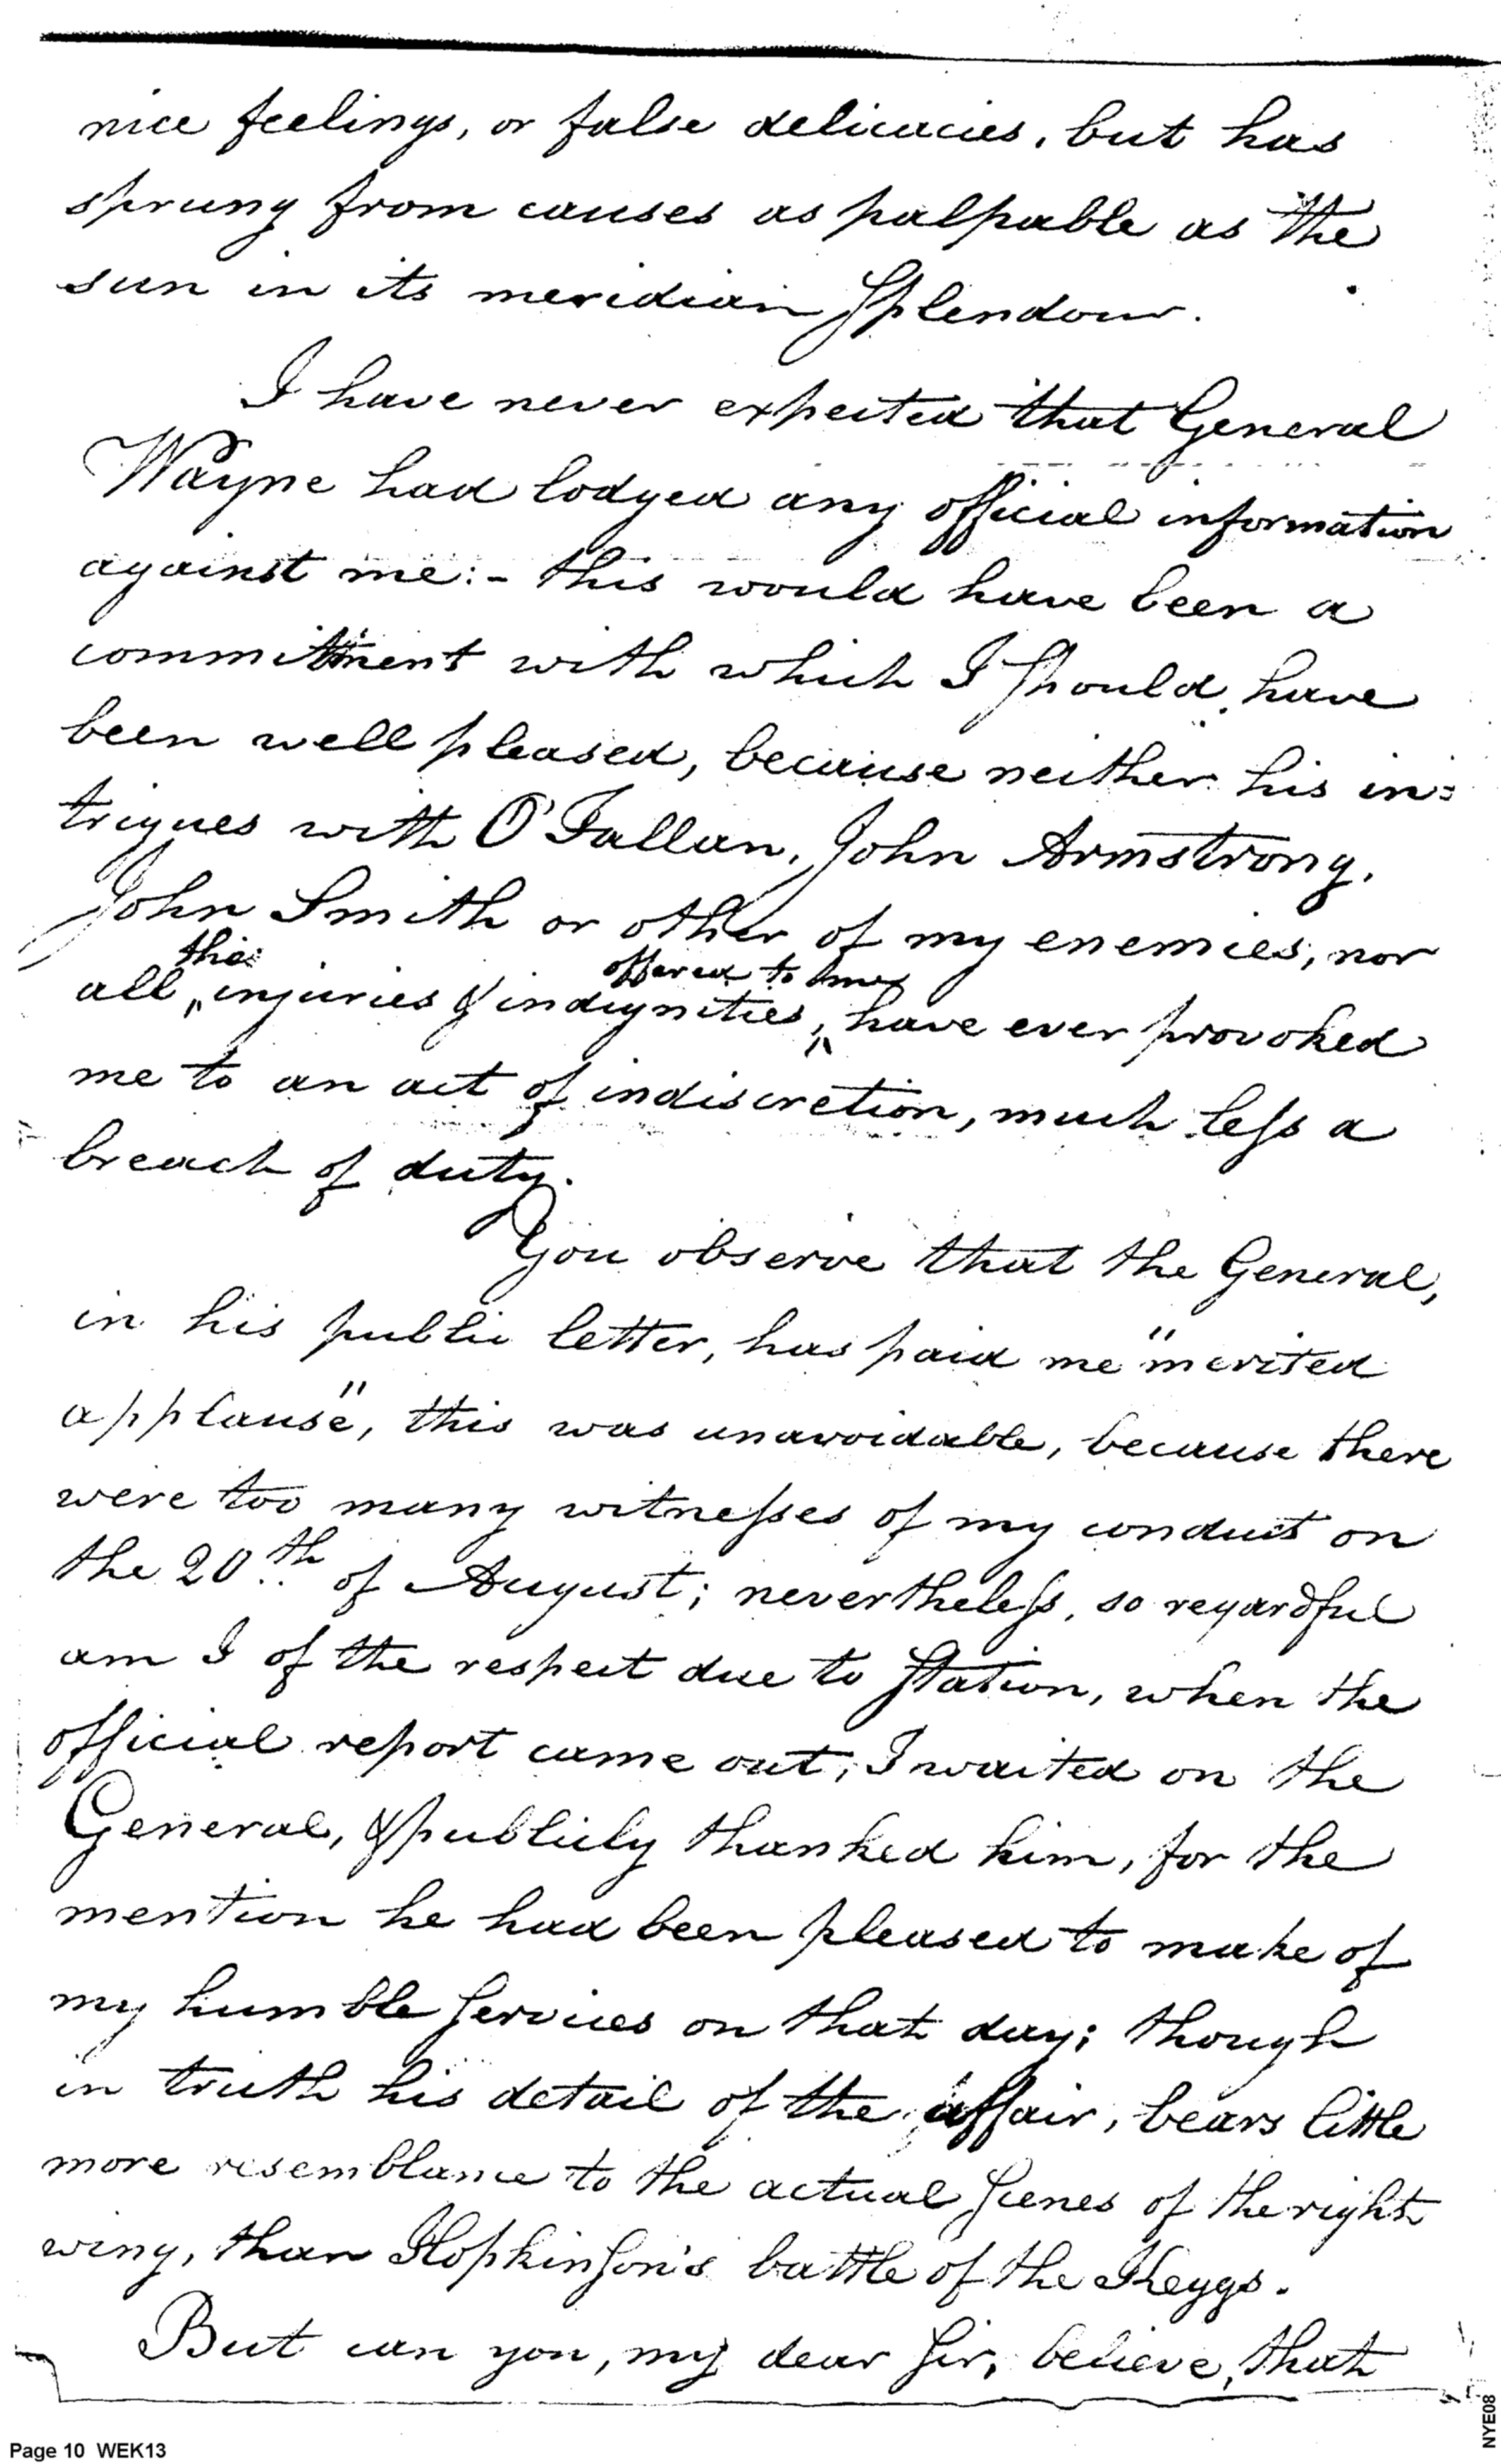 nice feelings, or false delicacies, but has
sprung from causes as palpable as the
sun in its meridian Splendour.
I have never expected that General
Wayne had lodged any official information
against me:- this would have been a
committment with which I should have
been well pleased, because neither his in=
trigues with O'Fallan, John Armstrong,
John Smith or other of my enemies, nor
all the injuries & indignities offered to me, have ever provoked
me to an act of indiscretion, much less a
breach of duty.
You observe that the General,
in his public letter, has paid me "merited
applause", this was unavoidable, because there
were too many witnesses of my conduct on
the 20th of August; nevertheless, so regardful
am I of the respect due to Station, when the
official report came out, I waited on the
General, & publicly thanked him, for the
mention he had been pleased to make of
my humble services on that day; though
in truth his detail of the affair, bears little
more resemblance to the actual scenes of the right
wing, than Hopkinson's battle of the Keggs.
But can you, my dear Sir, believe, that
Page 10 WEK13
NYE08